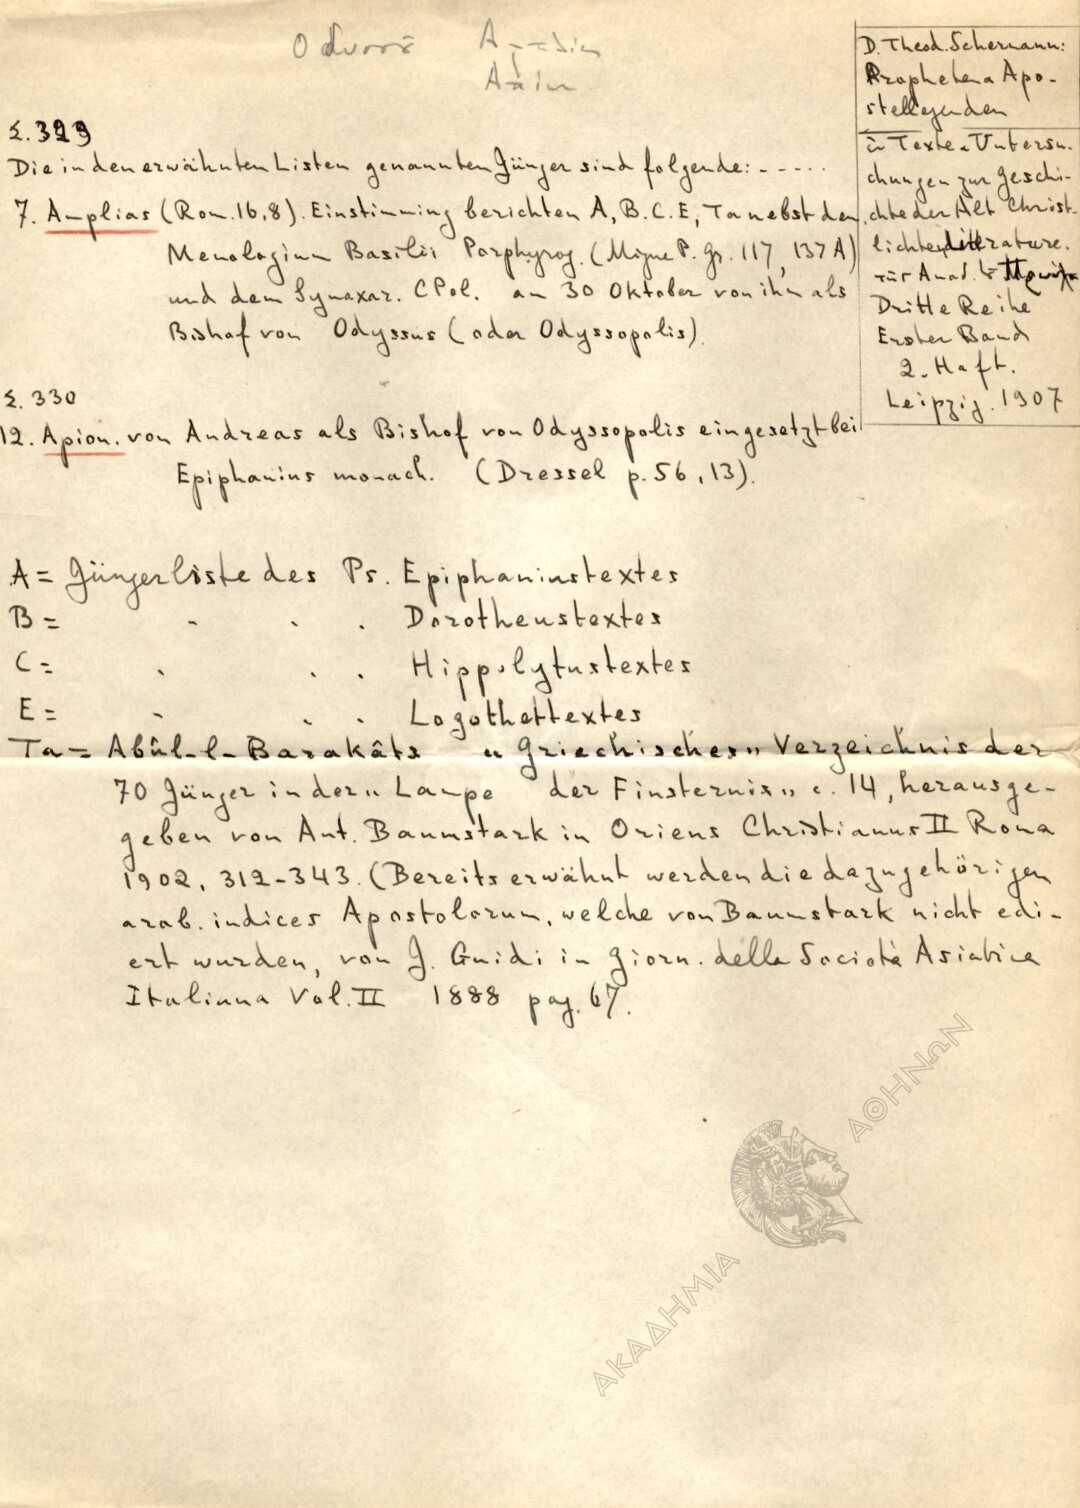 D. Theod. Schermann:
Propheten u Apo-
stellegenden
in Texte u Untersu-
chungen zur Geschi-
chte der Alt Christ-
lichten litterature.
Dritte Reihe
Erster Band
2. Haft.
Leipzig. 1907
Σ. 329
Die in den erwähnten Listen genannten Jünger sind folgende: - - - - -
7. Amplias (Rom. 16,8). Einstimmig berichten A, B. C. E, Ta nebst dem
Menologium Basilii Porphyrog. (Migne P. Gr. 117, 137 A)
und dem Synaxar. CPol. am 30 Oktober von ihm als
Bishof von Odyssus (oder Odyssopolis).
Σ. 330
12. Apion. von Andreas als Bishof von Odyssopolis eingesetzt bei
Epiphanius monach. (Dressel p. 56, 13).
A = Jüngerliste des Ps. Epiphaniustextes
B = " " " Dorotheustextes
C = " " " Hippolytustextes
E = " " " Logothettextes
Ta = Abûl-l-Barakâts „Griechisches" Verzeichnis der
70 Jünger in der „Lampe der Finsternis" c. 14, herausge-
geben von Ant. Baumstark in Oriens Christianus II Roma
1902, 312-343. (Bereits erwähnt werden die dazugehörigen
arab. indices Apostolorum, welche von Baumstark nicht edi-
ert wurden, von J. Guidi in Giorn. della Società Asiatica
Italiana Vol. II 1888 pag. 67.
ΑΚΑΔΗΜΙΑ ΑΘΗΝΩΝ